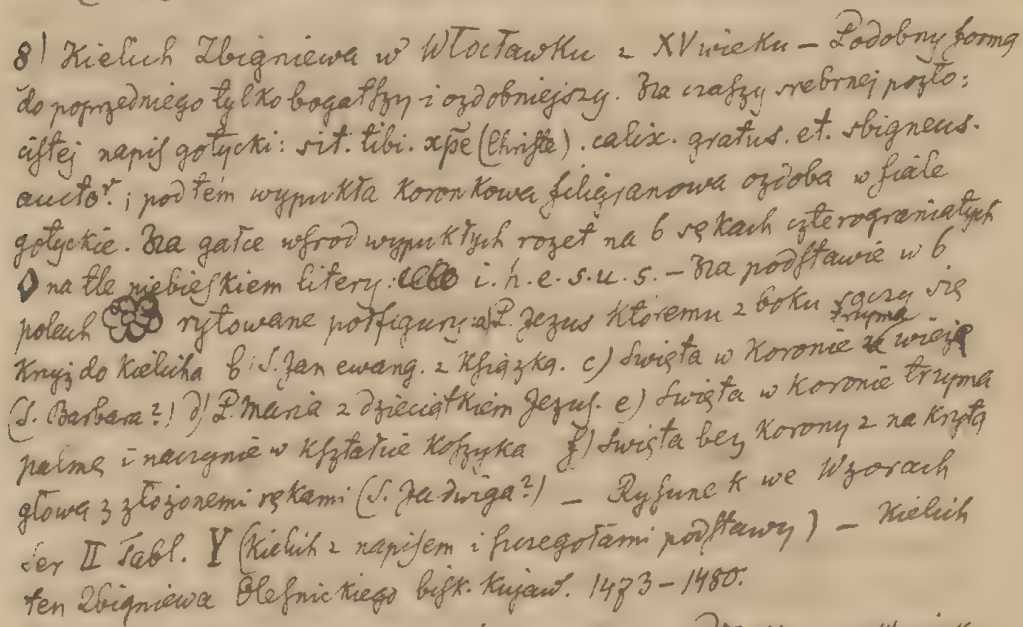 8) Kielich Zbigniewa w Włocławku z XV wieku – Podobny formą
do poprzedniego tylko bogatszy i ozdobniejszy. Na czaszy srebrnej pozło:
cistej napis gotycki: sit. tibi. xp̄e (Christe). calix. gratus. et. sbigneus.
aucto.r; pod tem wypukła koronkowa filigranowa ozdoba w fiale
gotyckie. Na gałce wśrod wypukłych rozet na 6 sękach czterograniatych
na tle niebieskiem litery: i. h. e. s. u. s. – Na podstawie w 6
polach rytowane półfigury: a) P. Jezus któremu z boku sączy się
krwi do kielicha b) S. Jan ewang. z książką. c) Święta w koronie trzyma wieżę
(S. Barbara?) d) P. Maria z dzieciątkiem Jezus. e) Święta w koronie trzyma
palmę i naczynie w kształcie koszyka f) Święta bez korony z nakrytą
głową z złożonemi rękami (S. Jadwiga?) – Rysunek we Wzorach
Ser II Tabl. Y (Kielich z napisem i szczegołami podstawy) – Kielich
ten Zbigniewa Oleśnickiego bisk. Kujaw. 1473–1480.